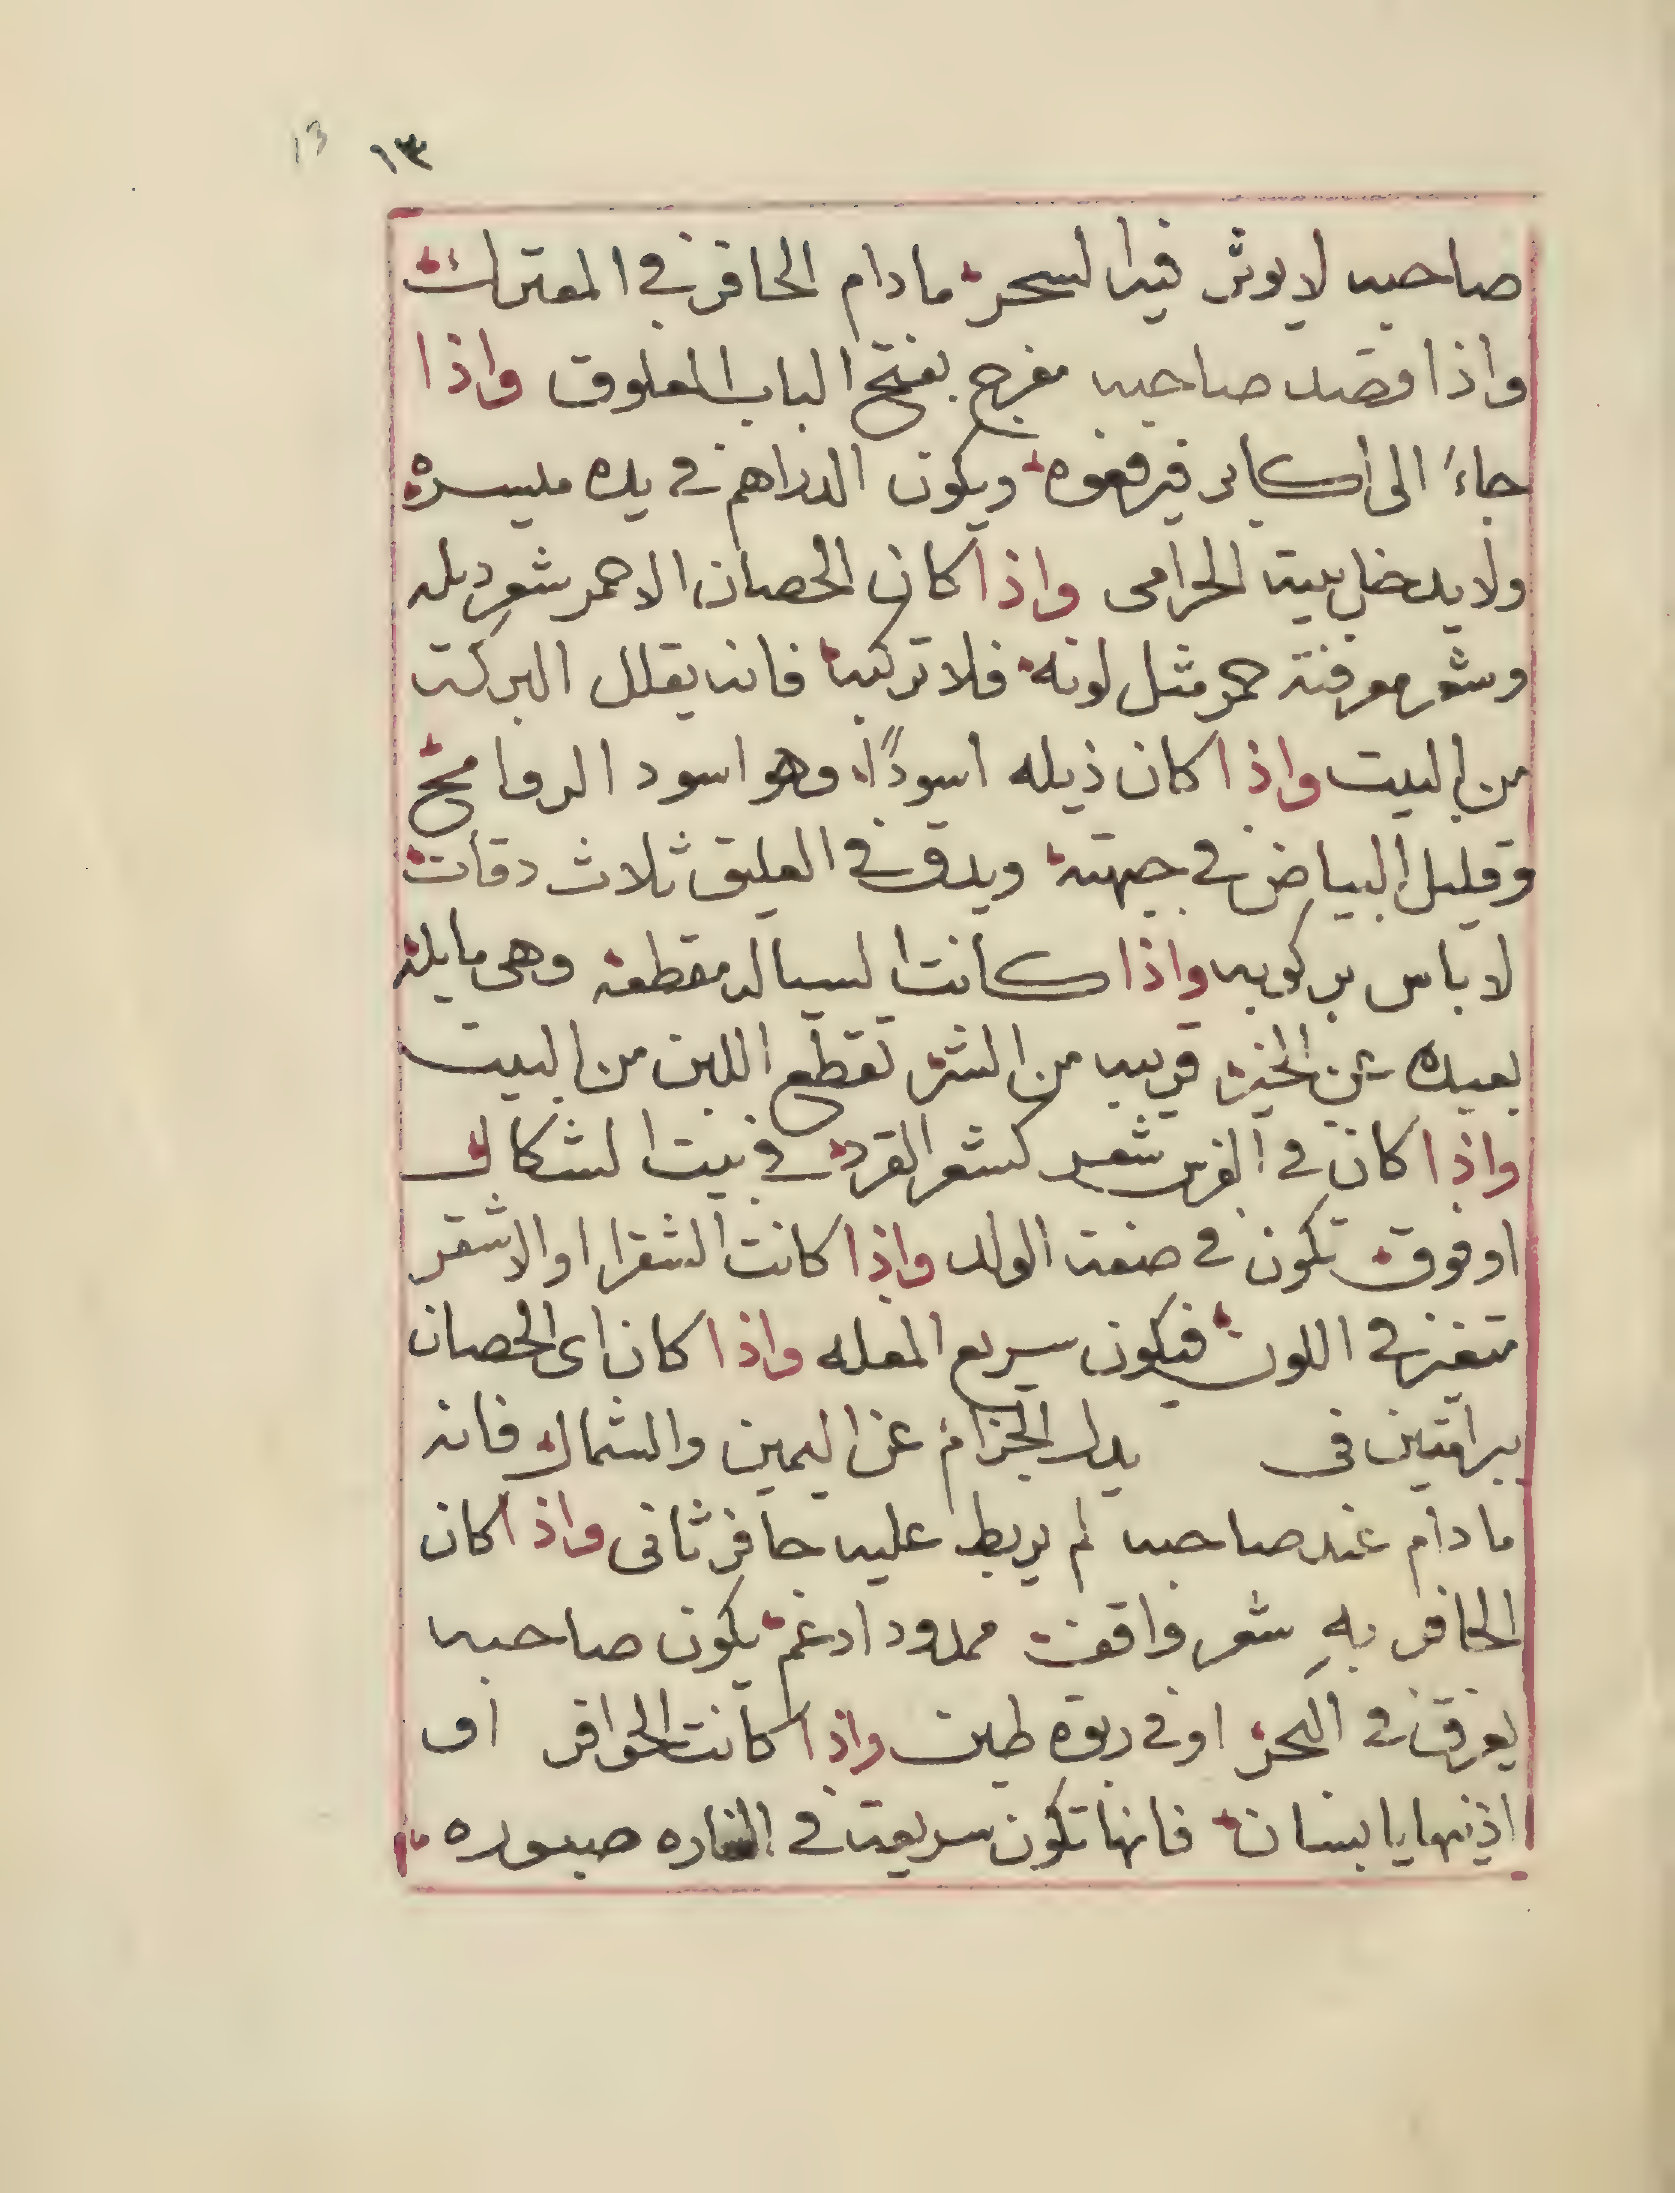 13 ١٣
صاحبه لا يوثر فيه السحر مادام الحافر في المعترك
واذا قصد صاحبه مفرج بفتح الباب المعلوق واذا
جاءَ الى اكابر فيرفعوه ويكون الدراهم في يده ميسره
ولا يدخل بيته الحرامى واذا كان الحصان الاحمر شعر ديله
وشعر معرفته حمر مثل لونه فلا تركبه فانه يقلل البركت
من البيت واذا كان ذيله اسودًا وهو اسود الروامخ
وقليل البياض في جبهته ويدق في العليق ثلاث دقات
لا باس بركوبه واذا كانت السياله مقطعه وهى مايله
بعيده عن الخير قريب من الشر تقطع اللبن من البيت
واذا كان في الفرس شعر كشعر القرد في بيت الشكال
او فوق تكون في صنعت الولد واذا كانت الشقرا او الاشقر
متغير في اللون فيكون سريع المعله واذا كان اى الحصان
ببرامتين فى يدار الحزام عن اليمين والشمال فانه
مادام عند صاحبه لم يربط عليه حافر ثانى واذا كان
الحافر بهِ شعر واقفت ممدود ادغم يكون صاحبه
يغرق في البحر او في ربوة طين واذا كانت الحوافر او
اذنيها يابسان فانها تكون سريعة في الغاره صبوره